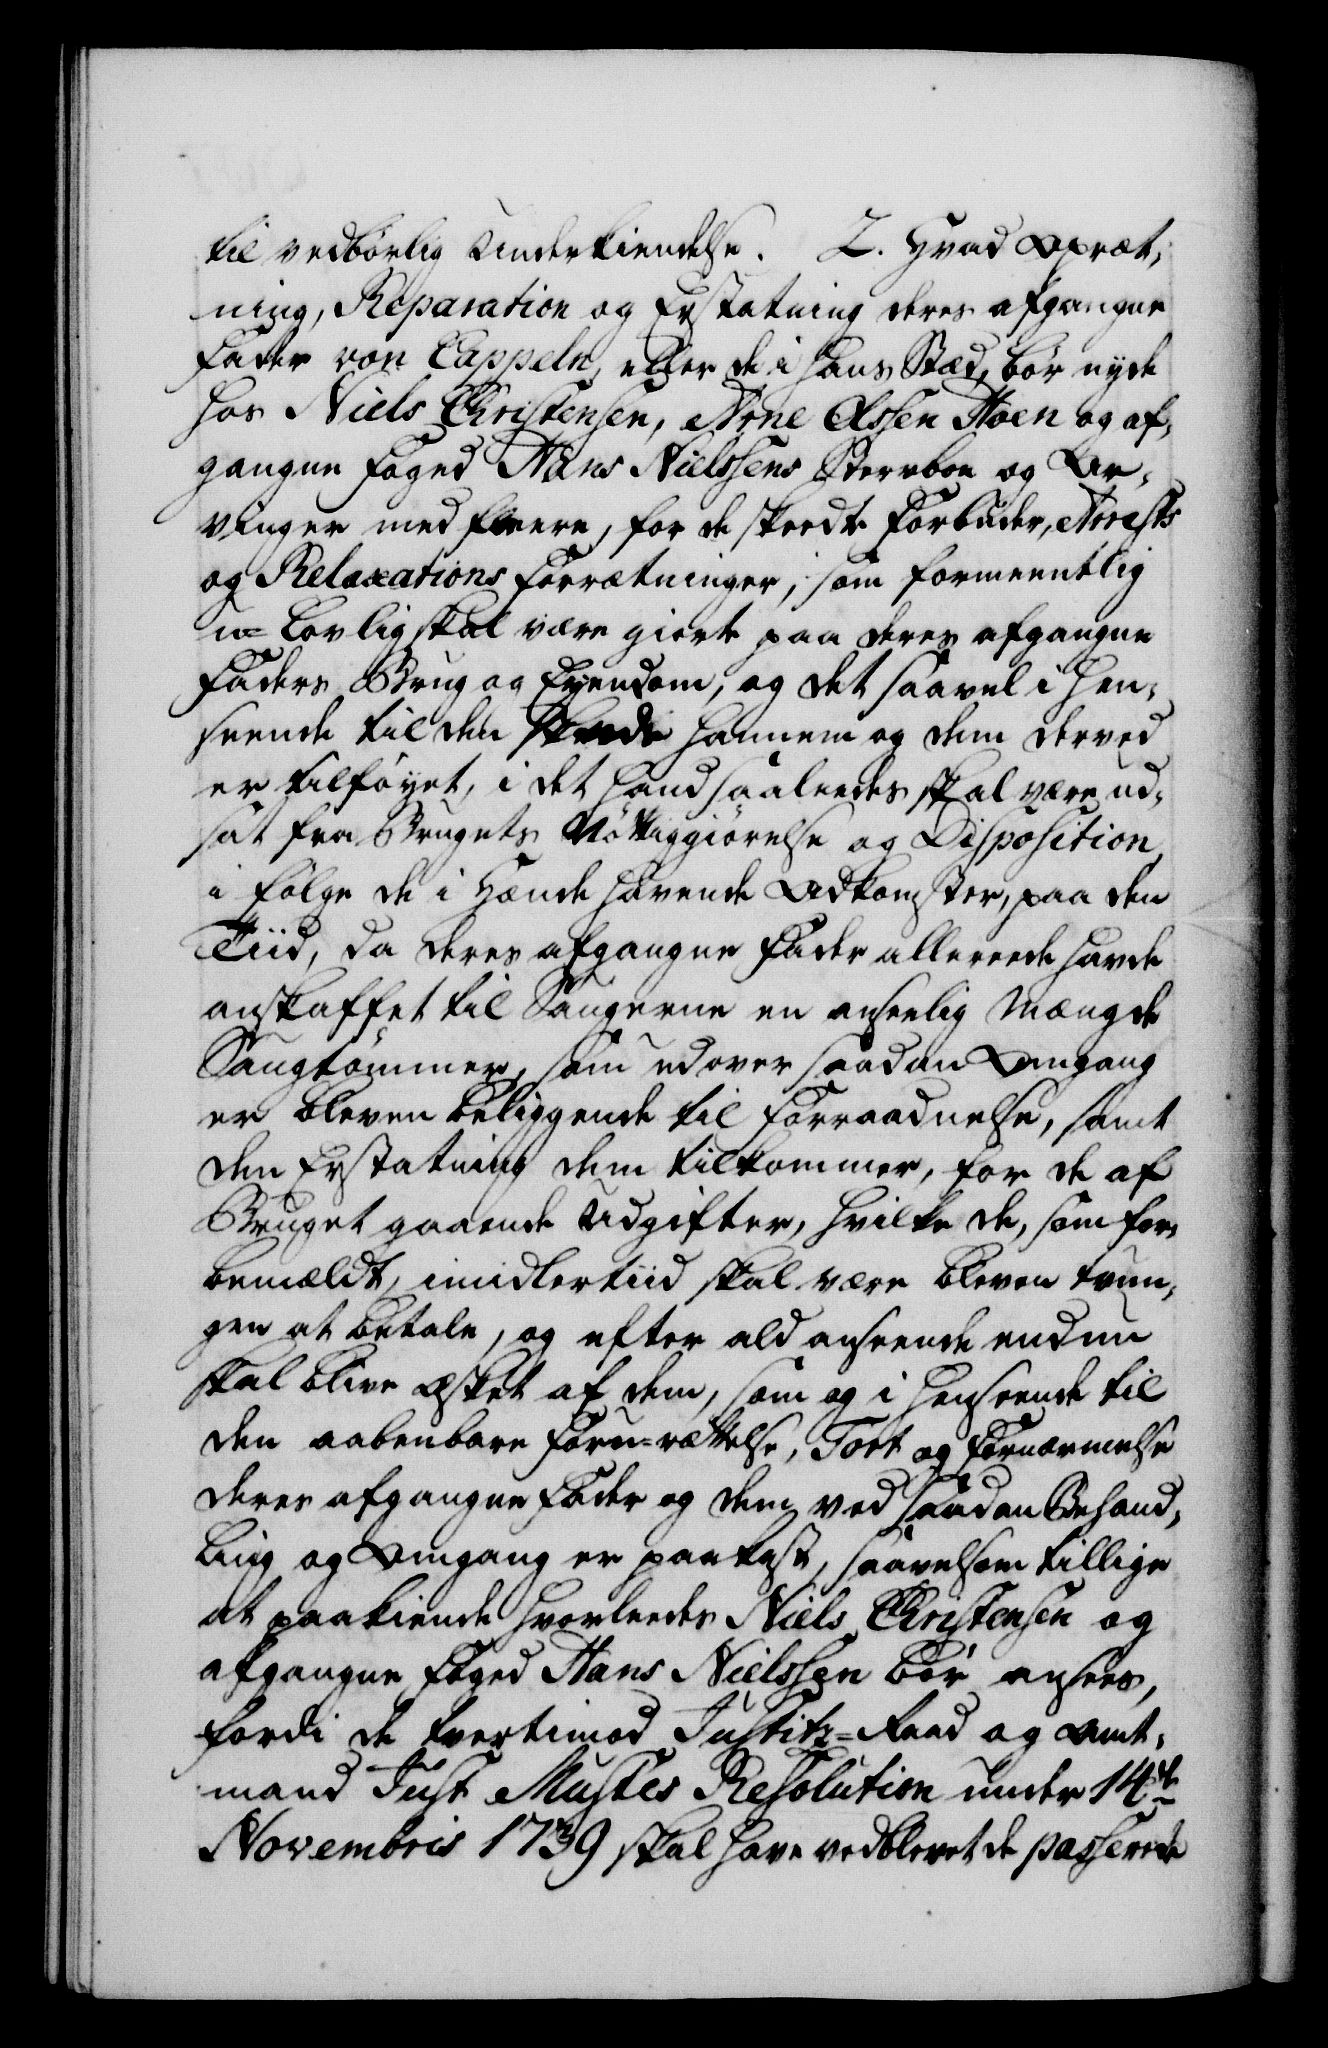 til vedbørlig Underkiendelse. 2. Hvad Opret-
ning, Reparation og Erstatning deres afgangne
Fader von Cappeln, eller de i hans Stæd, bør nyde
hos Niels Christensen, Arne Olssen Hoen og af-
gangne Foged Hans Nielssens Sterrboe og Ar-
vinger med fleere, for de skeedte Forbuder, Arrests
og Relaxations Forrætninger, som formeentlig
u=Lovlig skal være giorte paa deres afgangne
Faders Brug og Eyendom, og det saavel i Hen-
seende til den Skade hannem og dem derved
er tilføyet, i det hand saaleedes skal være ud-
sat fra Brugets Nøttiggiørelse og Disposition,
i følge de i Hænde havende Adkomster, paa den
Tiid, da deres afgangne Fader allereede havde
anskaffet til Saugerne en anseelig Mængde
Saugtømmer, som udover saadan Omgang
er bleven beliggende til Forraadnelse, samt
den Erstatning dem tilkommer, for de af
Bruget gaaende Udgifter, hvilke de, som for-
bemældt, imidlertiid skal være bleven tvun-
gen at betale, og efter ald anseende endnu
skal blive æsket af dem, som og i henseende til
den aabenbare Foru=rættelse, Tort og Fornærmelse
deres afgangne Fader og dem ved saadan Behand-
ling og Omgang er paakast, saavelsom tillige
at paakiende hvorleedes Niels Christensen og
afgangne Foged Hans Nielssen bør ansees,
fordi de tvertimod Justitz=Raad og Amt-
mand Just Mustes Resolution under 14de
Novembris 1739 skal have vedblevet de passerede